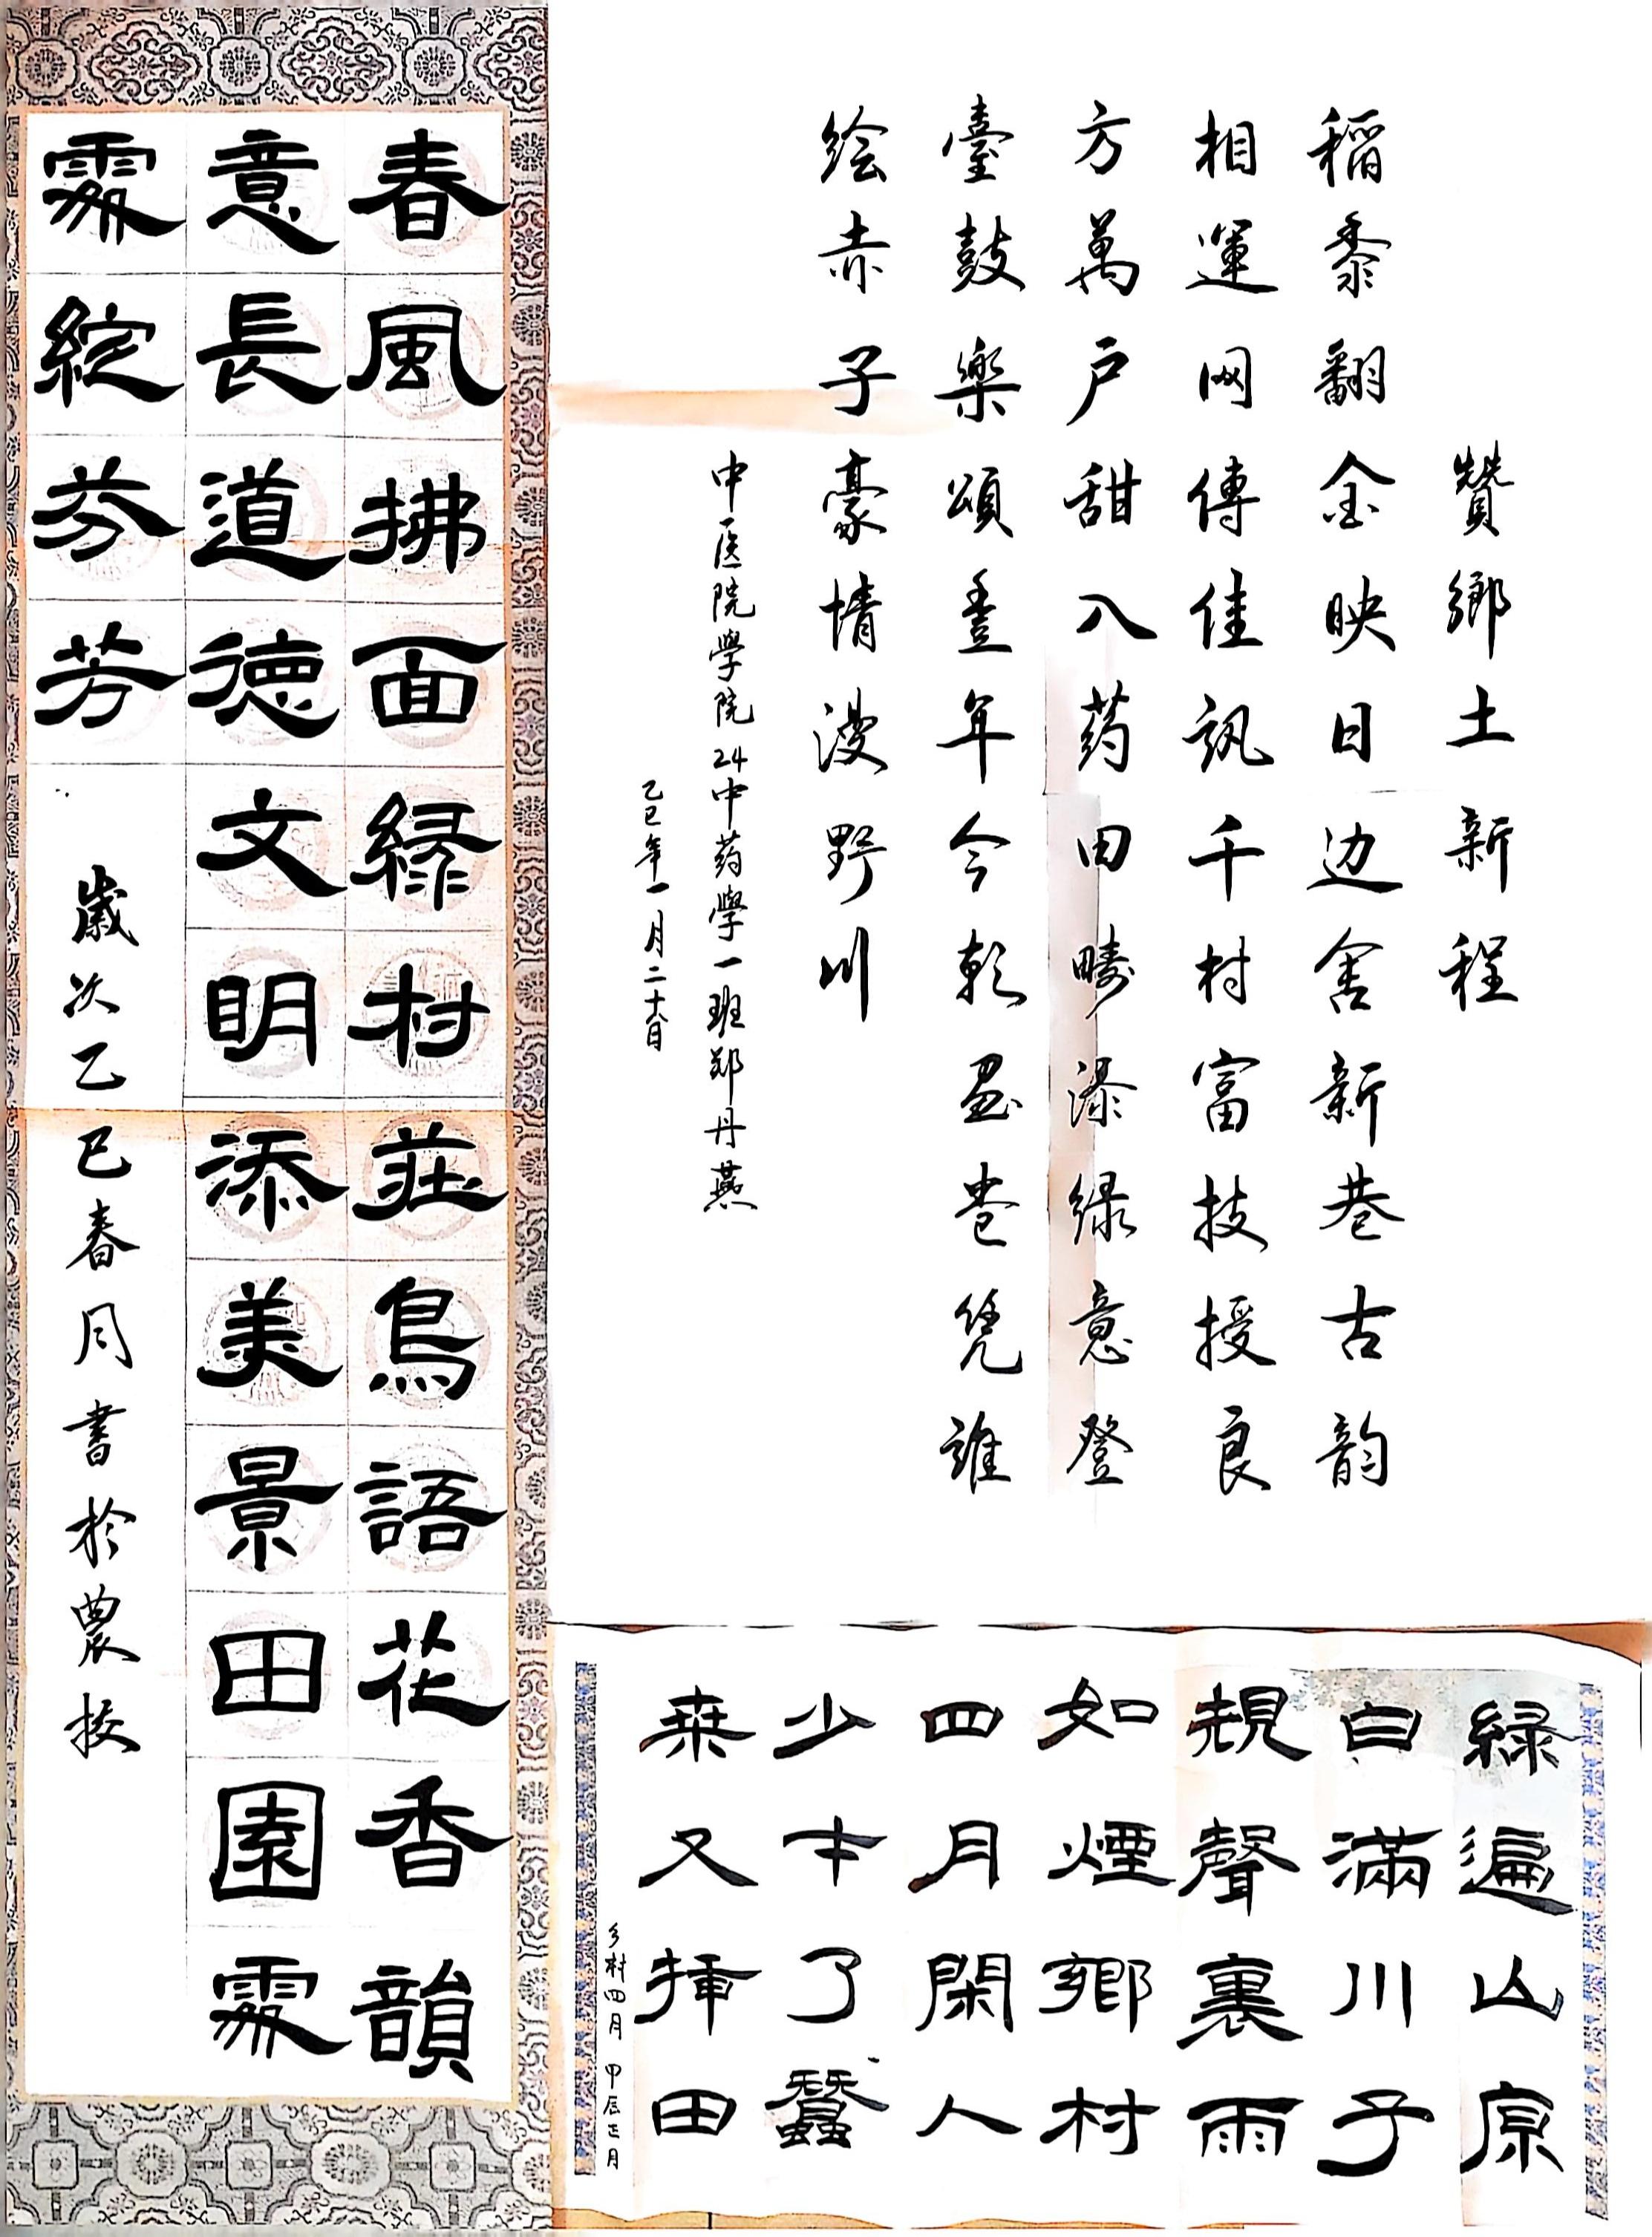 贊鄉土新程
稻黍翻金映日边舍新巷古韵
相運网傳佳訊千村富技授良
方萬户甜入药田畴瀑绿意登
臺鼓樂頌豊年今朝画卷凭誰
绘赤子豪情漫野川
中医院學院24中药學一班郑丹燕
乙巳年一月二十八日
綠遍山原
白滿川子
規聲裏雨
如煙鄉村
四月閑人
少才了蠶
桒又揷田
乡村四月 甲辰正月
春風拂面緑村莊鳥語花香韻
意長道德文明添美景田園處
處綻芬芳
歲次乙巳春月書於農校